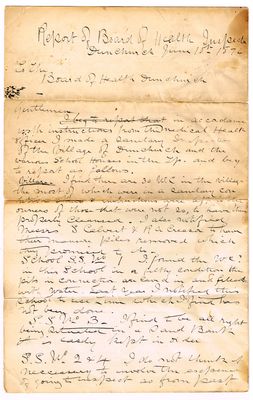 Report of Board of Health Inspector
Dunchurch June 15th 187
To the
Board of Health Dunchurch
Gentlemen
I beg to report that in accordance
with instructions from the Medical Health
officer I made a Sanitary Inspection
of the Village of Dunchurch and the
various School Houses in the Tp. and beg
to report as follows.
Village. I find there are 30 W.C. in the village
the most of which were in a sanitary con
owners of those that were not so, to have them
properly cleansed. I also notified
Messrs S Calvert & R to have
their manure piles removed which
they promised to do
School S.S. No 1. I found the W.C.s
in this School in a filthy condition the
pits in connection are
with water and I notified the
school to use lime which I find has
not being done.
S.S. No 3. I find to be all right
being situated in a Sand Bank
it is easily kept in order
S.S. No 2 & 4 I do not think it
neccessary to involve the expense
of going to inspect so from past